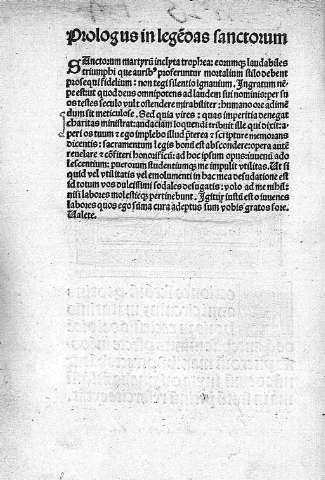 Prologus in legēdas sanctorum
SAnctorum martyrū inclyta trophea: eorumqȝ laudabiles
triumphi que aurib⁹ proferuntur mortalium stilo debent
prosequi fidelium: non tegi silentio ignavium. Ingratum nē
pe estut quod deus omnipotens ad laudem sui nominis per su
os testes seculo vult ostendere mirabiliter: humano ore adimē
dum sit meticulose. Sed quia vires: quas imperitia denegat
charitas ministrat: audaciam loquendi tribuit ille qui dixit: a
peri os tuum ⁊ ego implebo illud preterea scripture memorans
dicentis: sacramentum legis boni est abscondere: opera autē
revelare ⁊ cōfiteri honorificū: ad hoc ipsum opus iuveni ado
lescentium: puerorum studentiumqȝ me impulit utilitas. Ut si
quid vel utilitatis vel emolumenti in hac mea desudatione est
id totum vos dulcissimi sodales desugatis: volo ad me nihil:
nisi labores molestieqȝ pertinebunt. Igitur iusti est o iuvenes
labores quos ego suma cura adeptus sum vobis gratos fore.
Valete.